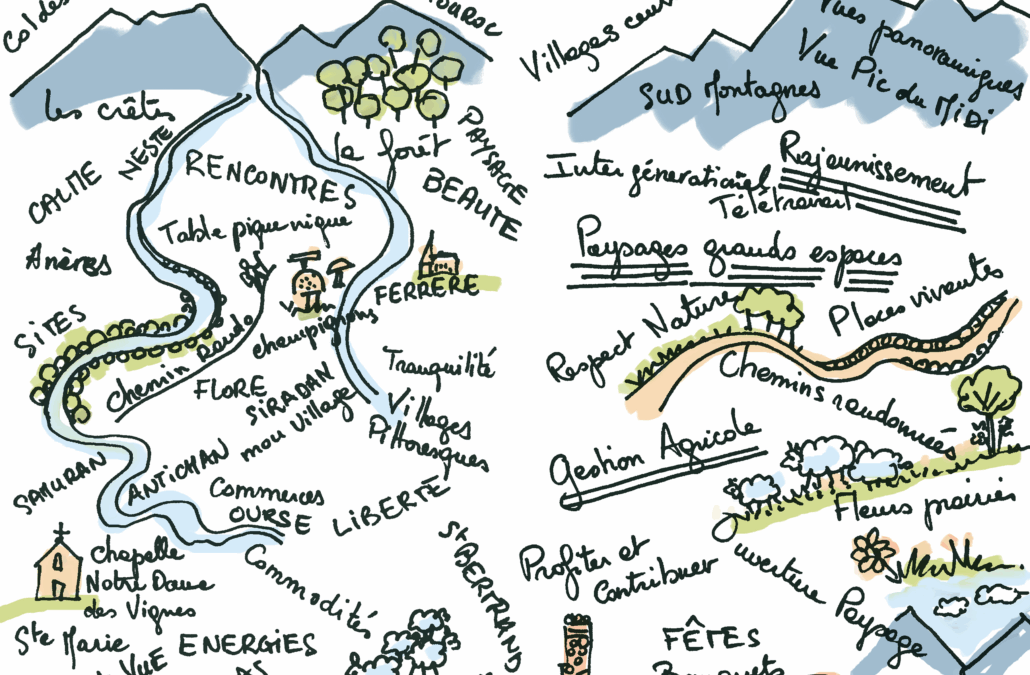 Col des
OUROC
Les crêtes
NESTE
la forêt
PAYSAGE
CALME
RENCONTRES
BEAUTE
Table pique nique
Anères
FERRERE
SITES
champignons
Chemin Rando
Tranquilité
FLORE
SIRADAN
mon Village
Villages
Pittoresques
SAMURAN
ANTICHAN
Commerces
OURSE
LIBERTÉ
Chapelle
Notre Dame
des Vignes
Commodités
St BERTRAND
Ste Marie
ENERGIES
VUE
Villages
Vues panoramiques
Vue Pic du MiDi
SUD Montagnes
Inter générationnel
Rajeunissement
Télétravail
Paysages grands espaces
Respect Nature
Places vivantes
Chemins randonnées
Gestion Agricole
Fleurs prairies
Profiter et
Contribuer
Ouverture Paysage
FÊTES
Banquets